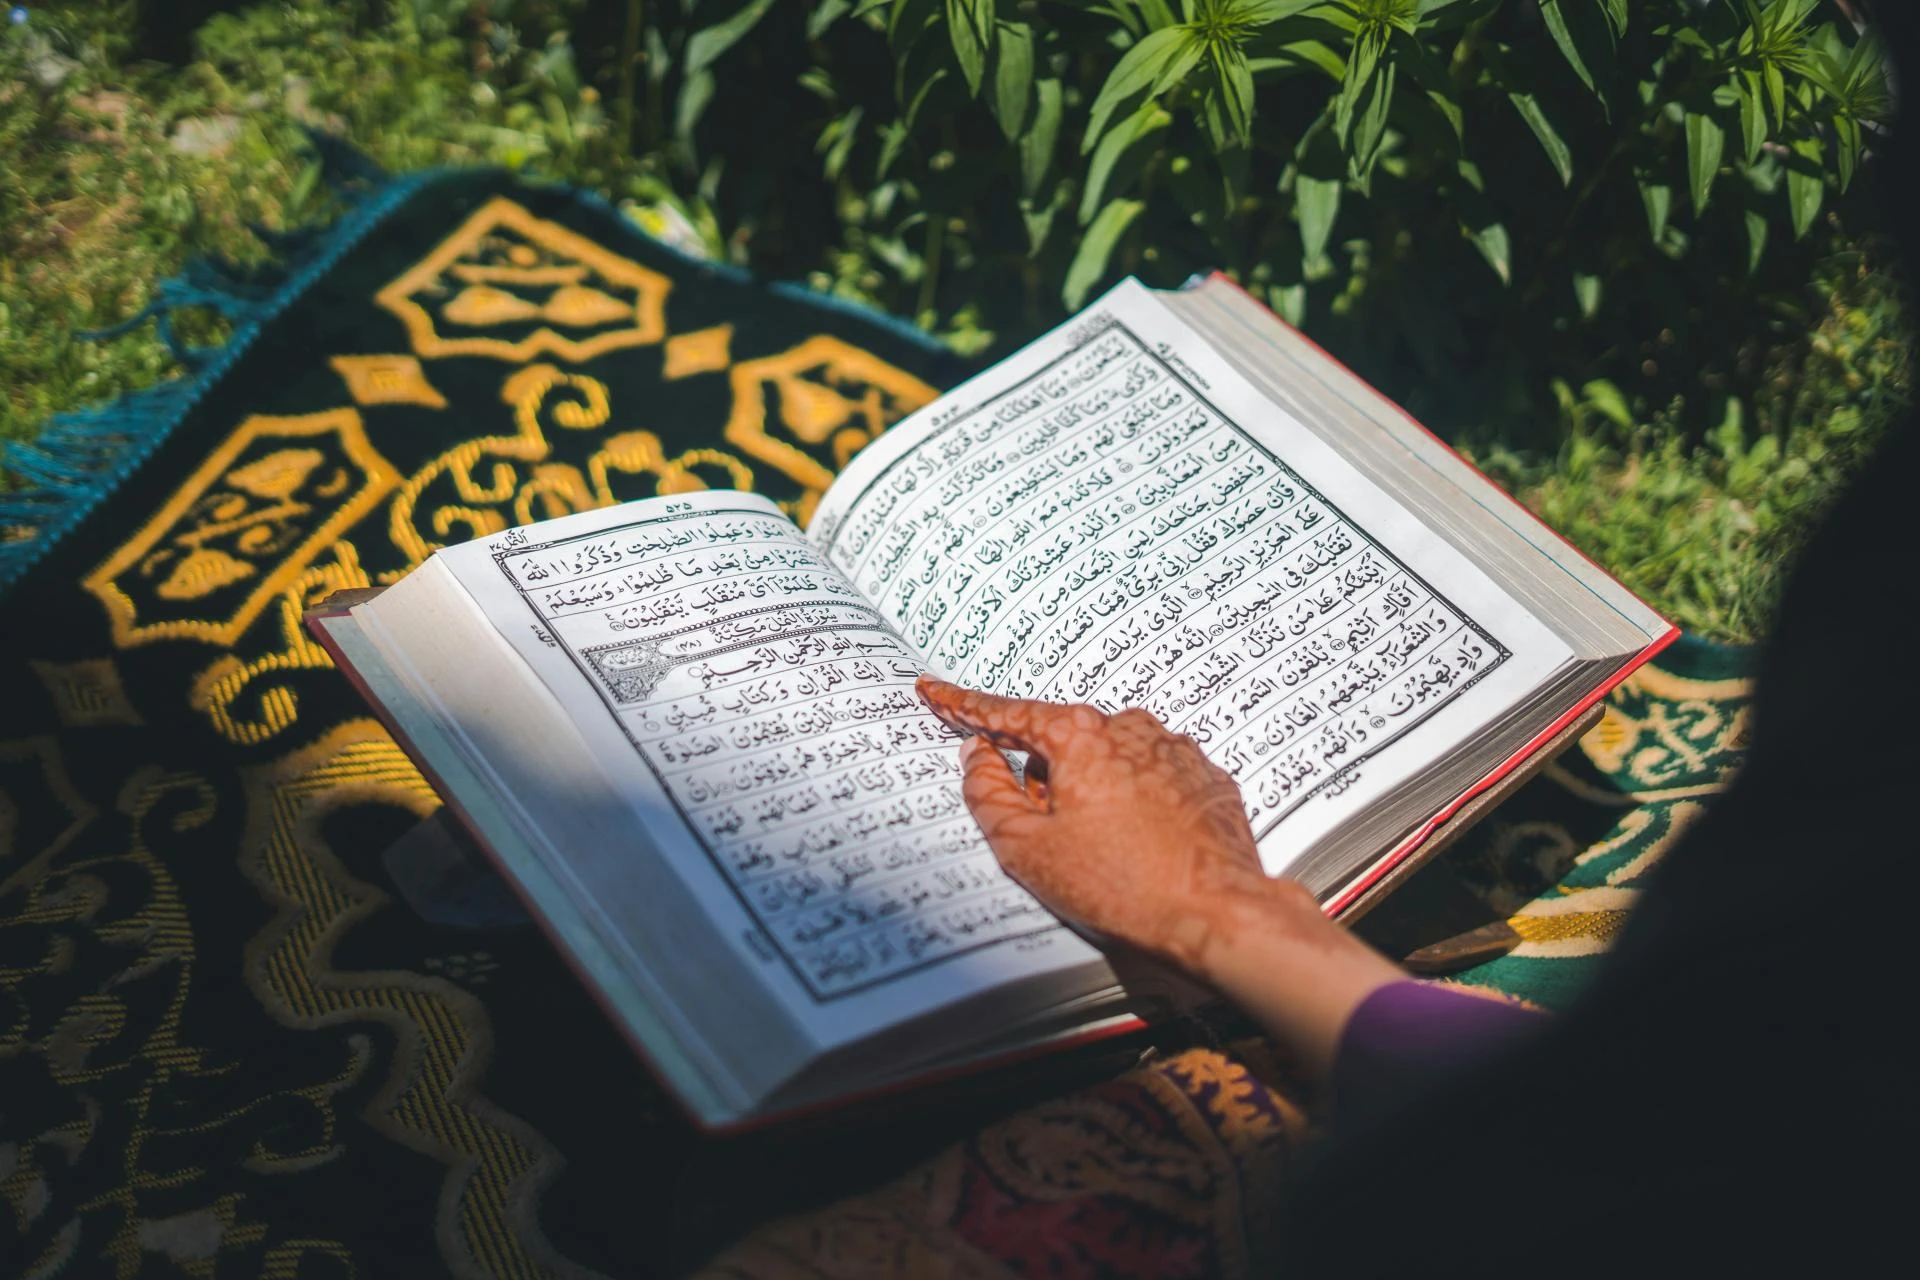 ۵۲۴
يُمَتَّعُوْنَ وَمَآ اَهْلَكْنَا مِنْ قَرْيَةٍ اِلَّا لَهَا مُنْذِرُوْنَ
ذِكْرٰى وَمَا كُنَّا ظٰلِمِيْنَ وَمَا تَنَزَّلَتْ بِهِ الشَّيٰطِيْنُ
وَمَا يَنْۢبَغِيْ لَهُمْ وَمَا يَسْتَطِيْعُوْنَ اِنَّهُمْ عَنِ السَّمْعِ
لَمَعْزُوْلُوْنَ فَلَا تَدْعُ مَعَ اللّٰهِ اِلٰهًا اٰخَرَ فَتَكُوْنَ
مِنَ الْمُعَذَّبِيْنَ وَاَنْذِرْ عَشِيْرَتَكَ الْاَقْرَبِيْنَ
وَاخْفِضْ جَنَاحَكَ لِمَنِ اتَّبَعَكَ مِنَ الْمُؤْمِنِيْنَ
فَاِنْ عَصَوْكَ فَقُلْ اِنِّيْ بَرِيْٓءٌ مِّمَّا تَعْمَلُوْنَ
عَلَى الْعَزِيْزِ الرَّحِيْمِ الَّذِيْ يَرٰىكَ حِيْنَ
تَقَلُّبَكَ فِي السّٰجِدِيْنَ اِنَّهٗ هُوَ السَّمِيْعُ
اُنَبِّئُكُمْ عَلٰى مَنْ تَنَزَّلُ الشَّيٰطِيْنُ
اَفَّاكٍ اَثِيْمٍ يُّلْقُوْنَ السَّمْعَ
وَالشُّعَرَآءُ يَتَّبِعُهُمُ الْغَاوٗنَ
وَادٍ يَّهِيْمُوْنَ وَاَنَّهُمْ يَقُوْلُوْنَ
منزل ۵
۵۲۵
النَّمْل ۲۷
اٰمَنُوْا وَعَمِلُوا الصّٰلِحٰتِ وَذَكَرُوا اللّٰهَ
مِنْۢ بَعْدِ مَا ظُلِمُوْا وَسَيَعْلَمُ
ظَلَمُوْٓا اَيَّ مُنْقَلَبٍ يَّنْقَلِبُوْنَ
سُوْرَةُ النَّمْلِ مَكِّيَّةٌ (۴۸)
بِسْمِ اللّٰهِ الرَّحْمٰنِ الرَّحِيْمِ
اٰيٰتُ الْقُرْاٰنِ وَكِتَابٍ مُّبِيْنٍ
لِلْمُؤْمِنِيْنَ الَّذِيْنَ يُقِيْمُوْنَ الصَّلٰوةَ
وَهُمْ بِالْاٰخِرَةِ هُمْ يُوْقِنُوْنَ اِنَّ
بِالْاٰخِرَةِ زَيَّنَّا لَهُمْ اَعْمَالَهُمْ فَهُمْ
الَّذِيْنَ لَهُمْ سُوْٓءُ الْعَذَابِ وَهُمْ
وَاِنَّكَ لَتُلَقَّى الْقُرْاٰنَ
اِذْ قَالَ مُوْسٰى لِاَهْلِهٖٓ
مِّنْهَا بِخَبَرٍ اَوْ اٰتِيْكُمْ